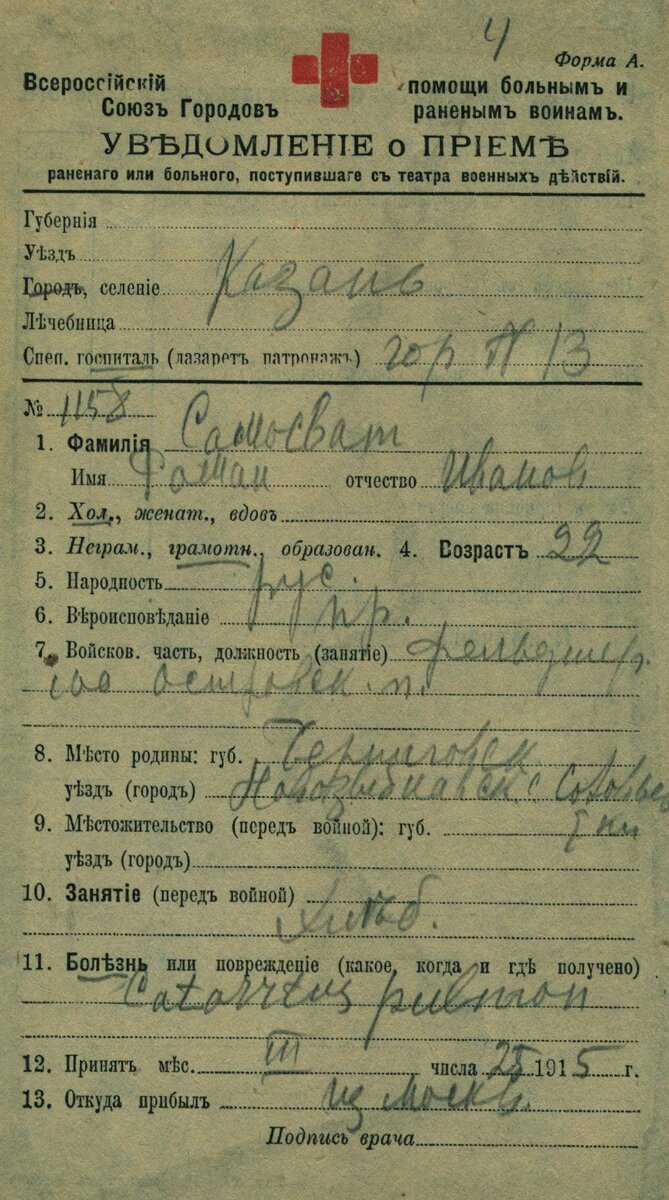 4
Форма А.
Всероссійскій
Союзъ Городовъ
помощи больнымъ и
раненымъ воинамъ.
УВѢДОМЛЕНІЕ о ПРІЕМѢ
раненаго или больного, поступившаго съ театра военныхъ дѣйствій.
Губернія
Уѣздъ
Городъ, селеніе Казань
Лѣчебница
Спец. госпиталь (лазаретъ патронажъ) гор N 13
№ 1158
1. Фамилія Самосват
Имя Роман отчество Иванов
2. Хол., женат., вдовъ
3. Неграм., грамотн., образован. 4. Возрастъ 22
5. Народность рус.
6. Вѣроисповѣданіе пр.
7. Войсков. часть, должность (занятіе) фельдшер.
островск. п.
8. Мѣсто родины: губ. Черниговск
уѣздъ (городъ) Новозыбковск с
9. Мѣстожительство (передъ войной): губ.
уѣздъ (городъ)
10. Занятіе (передъ войной)
хлѣб.
11. Болѣзнь или поврежденіе (какое, когда и гдѣ получено)
pulmon
12. Принятъ мѣс. III числа 25 1915 г.
13. Откуда прибылъ из Москв.
Подпись врача